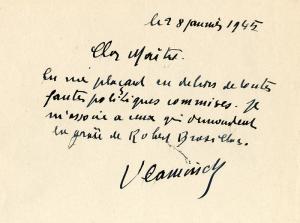 le 28 janvier 1945
Cher Maître.
En me plaçant en dehors de toutes
fautes politiques commises. Je
m'associe à ceux qui demandent
la grâce de Robert Brasillac.
Vlaminck